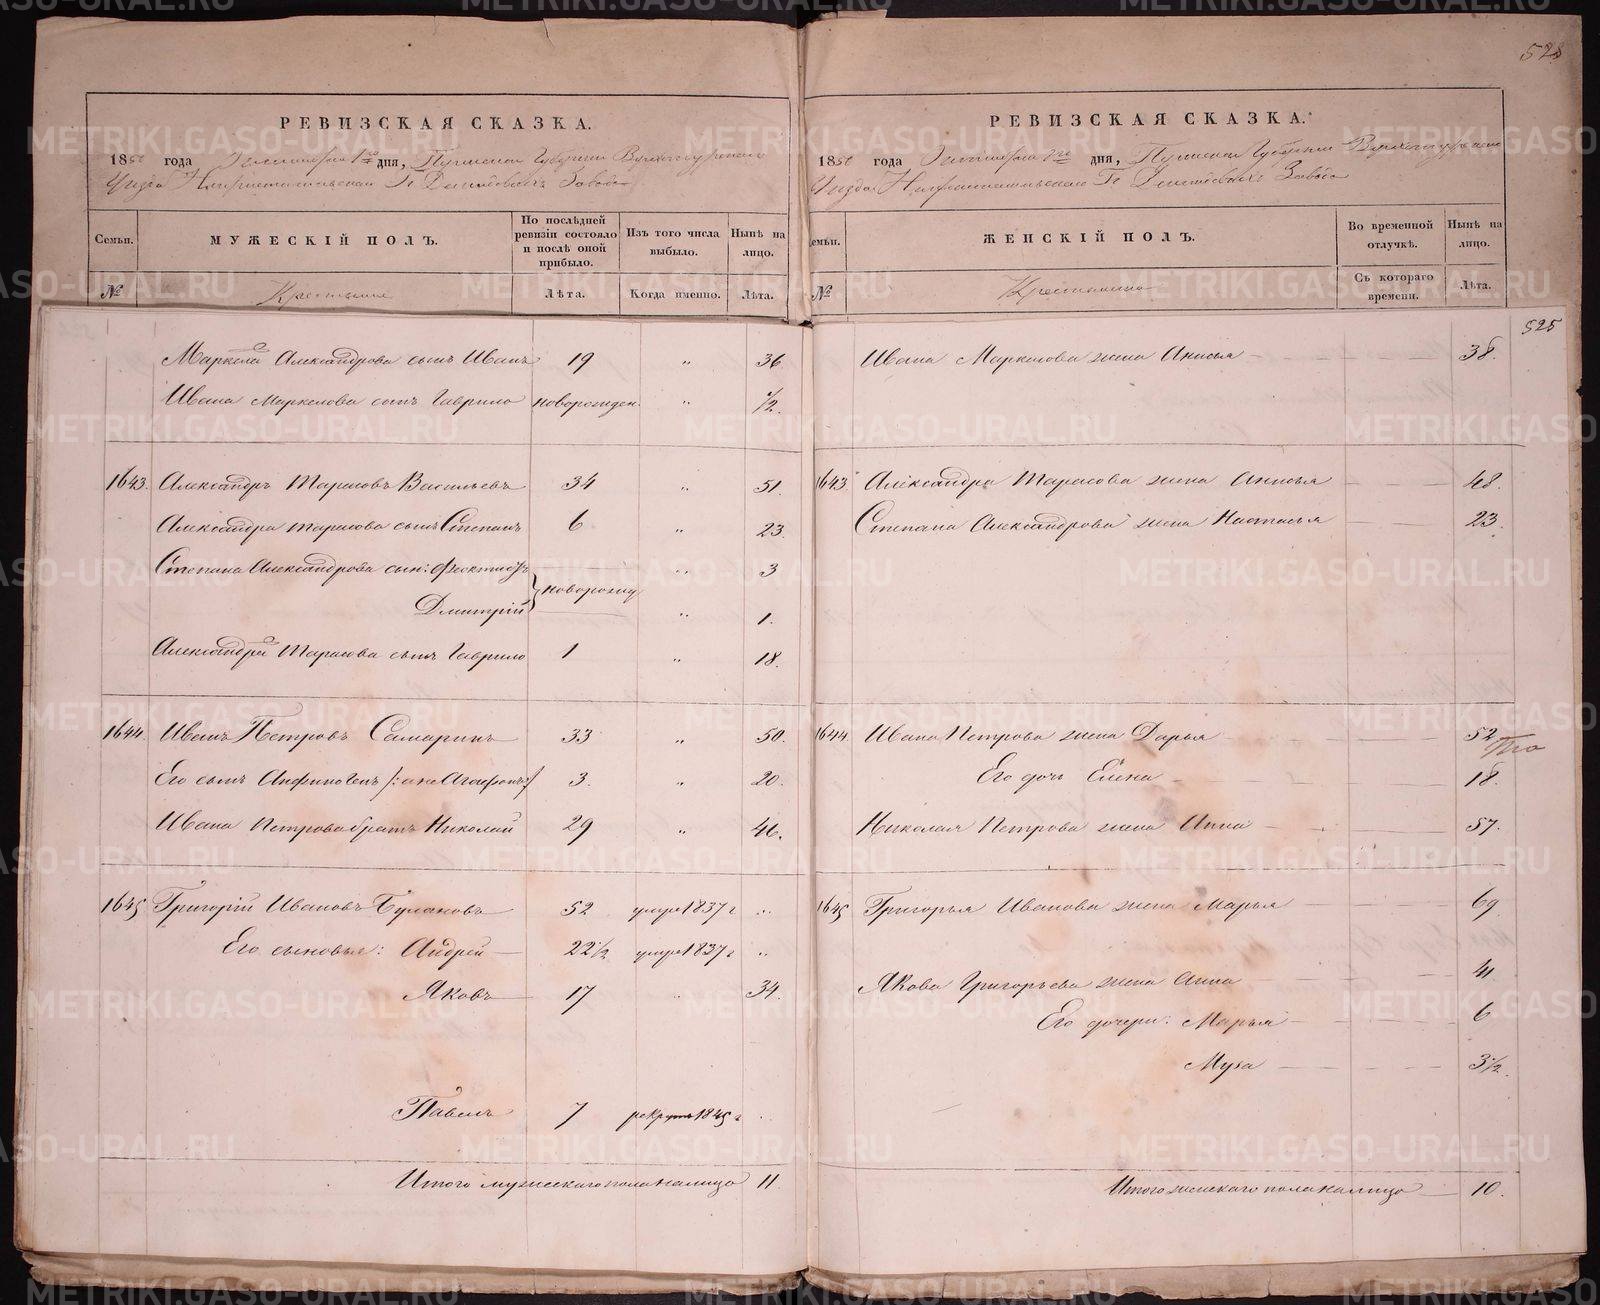 528
РЕВИЗСКАЯ СКАЗКА.
1850 года Сентября 1го дня, Пермской Губернии Верхотурскаго
Уезда Нижнетагильскаго Гг. Демидовыхъ Завода
Семьи. МУЖЕСКІЙ ПОЛЪ. По послѣдней ревизіи состояло и послѣ оной прибыло. Изъ того числа выбыло. Нынѣ на лицо.
№ Крестьяне Лѣта. Когда именно. Лѣта.
Маркела Александрова сынъ Иванъ 19 " 36.
Ивана Маркелова сынъ Гаврило новорожден. " 1/2.
1643. Александръ Тарасовъ Васильевъ 34 " 51.
Александра Тарасова сынъ Степанъ 6 " 23.
Степана Александрова сын: Феоктистъ " 3
новорожд
Дмитрій " 1.
Александра Тарасова сынъ Гаврило 1 " 18.
1644. Иванъ Петровъ Самаринъ 33 " 50.
Его сынъ Анфиногенъ /: а не Агафонъ :/ 3. " 20.
Ивана Петрова братъ Николай 29 " 46.
1645 Григорій Ивановъ Булаковъ 52 умре 1837 г "
Его сыновья: Андрей 22 1/2 умре 1837 г "
Яковъ 17 " 34.
Павелъ 7 рекрут 1845 г "
Итого мужескаго пола на лицо 11
РЕВИЗСКАЯ СКАЗКА.
1850 года Сентября 1го дня, Пермской Губернии Верхотурскаго
Уезда Нижнетагильскаго Гг. Демидовыхъ Завода
Семьи. ЖЕНСКІЙ ПОЛЪ. Во временной отлучкѣ. Нынѣ на лицо.
№ Крестьянки Съ котораго времени. Лѣта.
525
Ивана Маркелова жена Анисья 38.
1643. Александра Тарасова жена Анисья 48.
Степана Александрова жена Настасья 23.
1644. Ивана Петрова жена Дарья 52
Его дочь Елена 18.
Николая Петрова жена Анна 57.
1645 Григорья Иванова жена Марья 69
Якова Григорьева жена Анна 41
Его дочери: Марья 6
Муза 3 1/2.
Итого женскаго пола на лицо 10.
METRIKI.GASO-URAL.RU